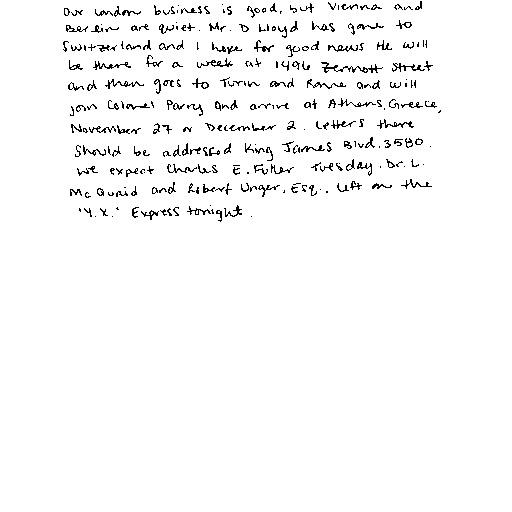 Our London business is good, but Vienna and
Berlin are quiet. Mr. D Lloyd has gone to
Switzerland and I hope for good news He will
be there for a week at 1496 Zermott Street
and then goes to Turin and Rome and will
join Colonel Parry and arrive at Athens, Greece,
November 27 or December 2. Letters there
should be addressed King James Blvd. 3580.
We expect Charles E. Fuller Tuesday. Dr. L.
McQuaid and Robert Unger, Esq., left on the
"Y.X." Express tonight.